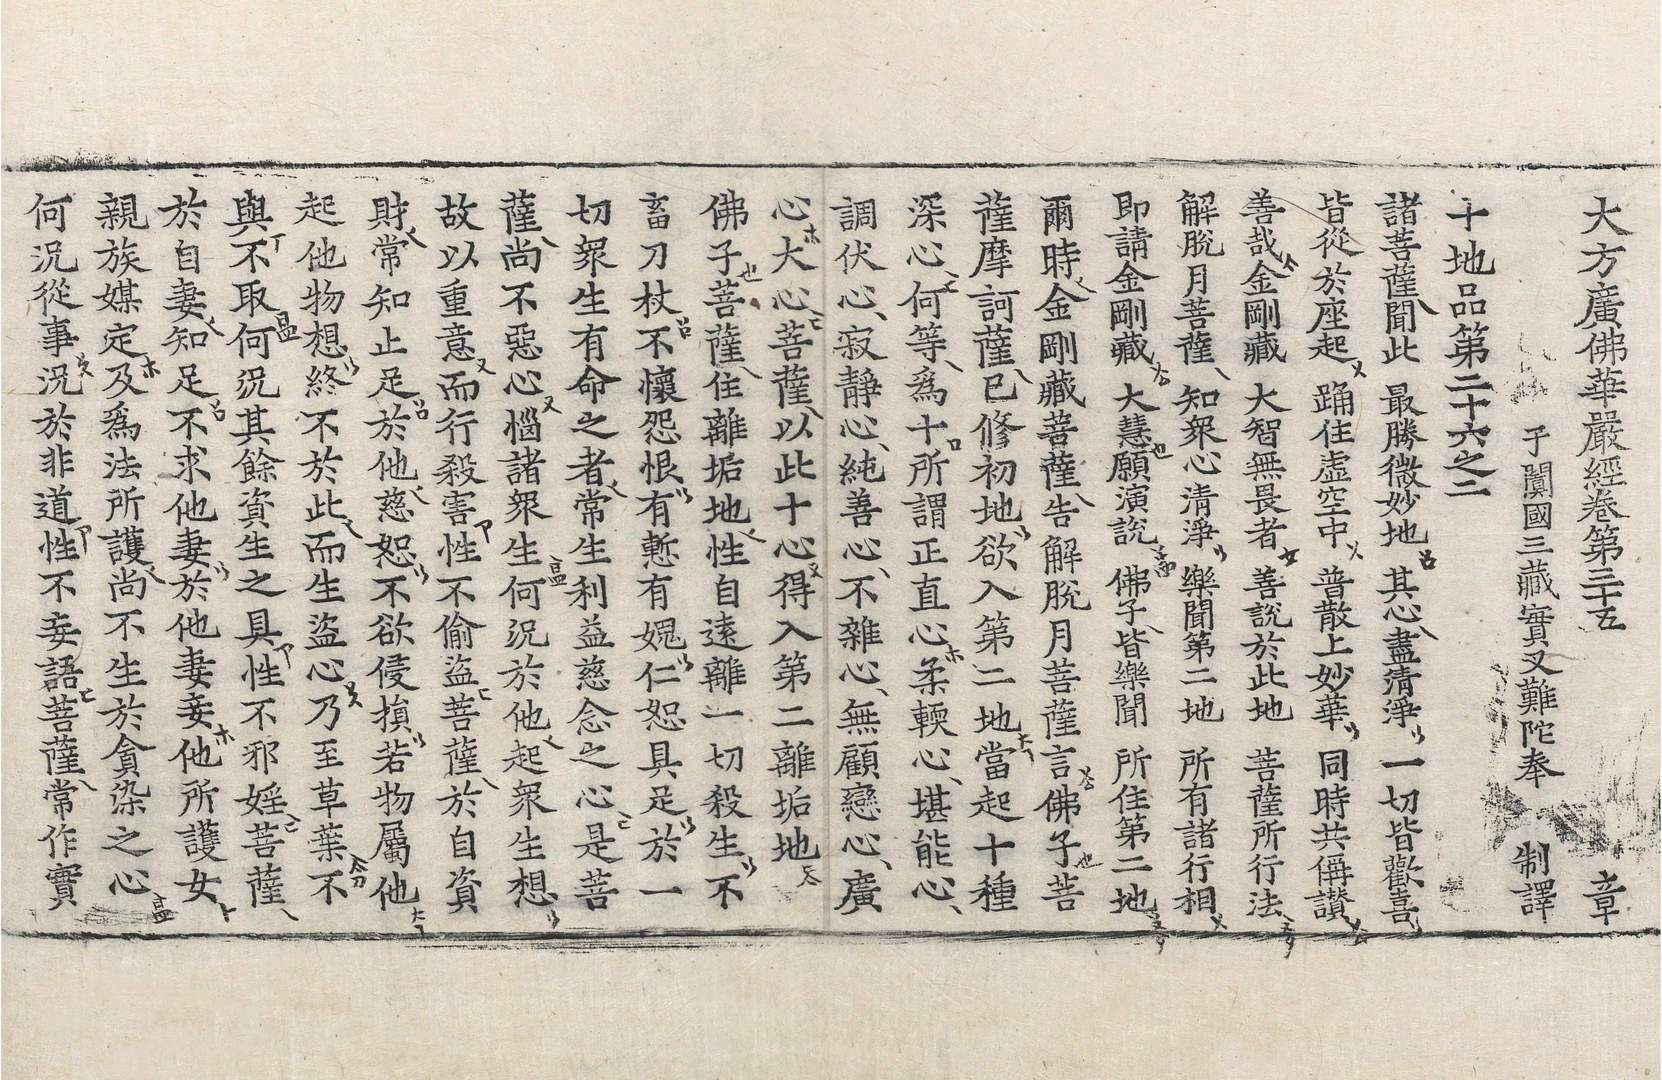 大方廣佛華嚴經卷第三十五 章
于闐國三藏實叉難陀奉 制譯
十地品第二十六之二
諸菩薩聞此 最勝微妙地 其心盡清淨 一切皆歡喜
皆從於座起 踊住虛空中 普散上妙華 同時共稱讃
善哉金剛藏 大智無畏者 善說於此地 菩薩所行法
解脫月菩薩 知衆心清淨 樂聞第二地 所有諸行相
即請金剛藏 大慧願演說 佛子皆樂聞 所住第二地
爾時金剛藏菩薩告解脫月菩薩言佛子菩
薩摩訶薩已修初地欲入第二地當起十種
深心何等爲十所謂正直心柔輭心堪能心
調伏心寂靜心純善心不雜心無顧戀心廣
心大心菩薩以此十心得入第二離垢地
佛子菩薩住離垢地性自遠離一切殺生不
畜刀杖不懷怨恨有慙有愧仁恕具足於一
切衆生有命之者常生利益慈念之心是菩
薩尚不惡心惱諸衆生何況於他起衆生想
故以重意而行殺害性不偷盜菩薩於自資
財常知止足於他慈恕不欲侵損若物屬他
起他物想終不於此而生盜心乃至草葉不
與不取何況其餘資生之具性不邪婬菩薩
於自妻知足不求他妻於他妻妾他所護女
親族媒定及爲法所護尚不生於貪染之心
何況從事況於非道性不妄語菩薩常作實